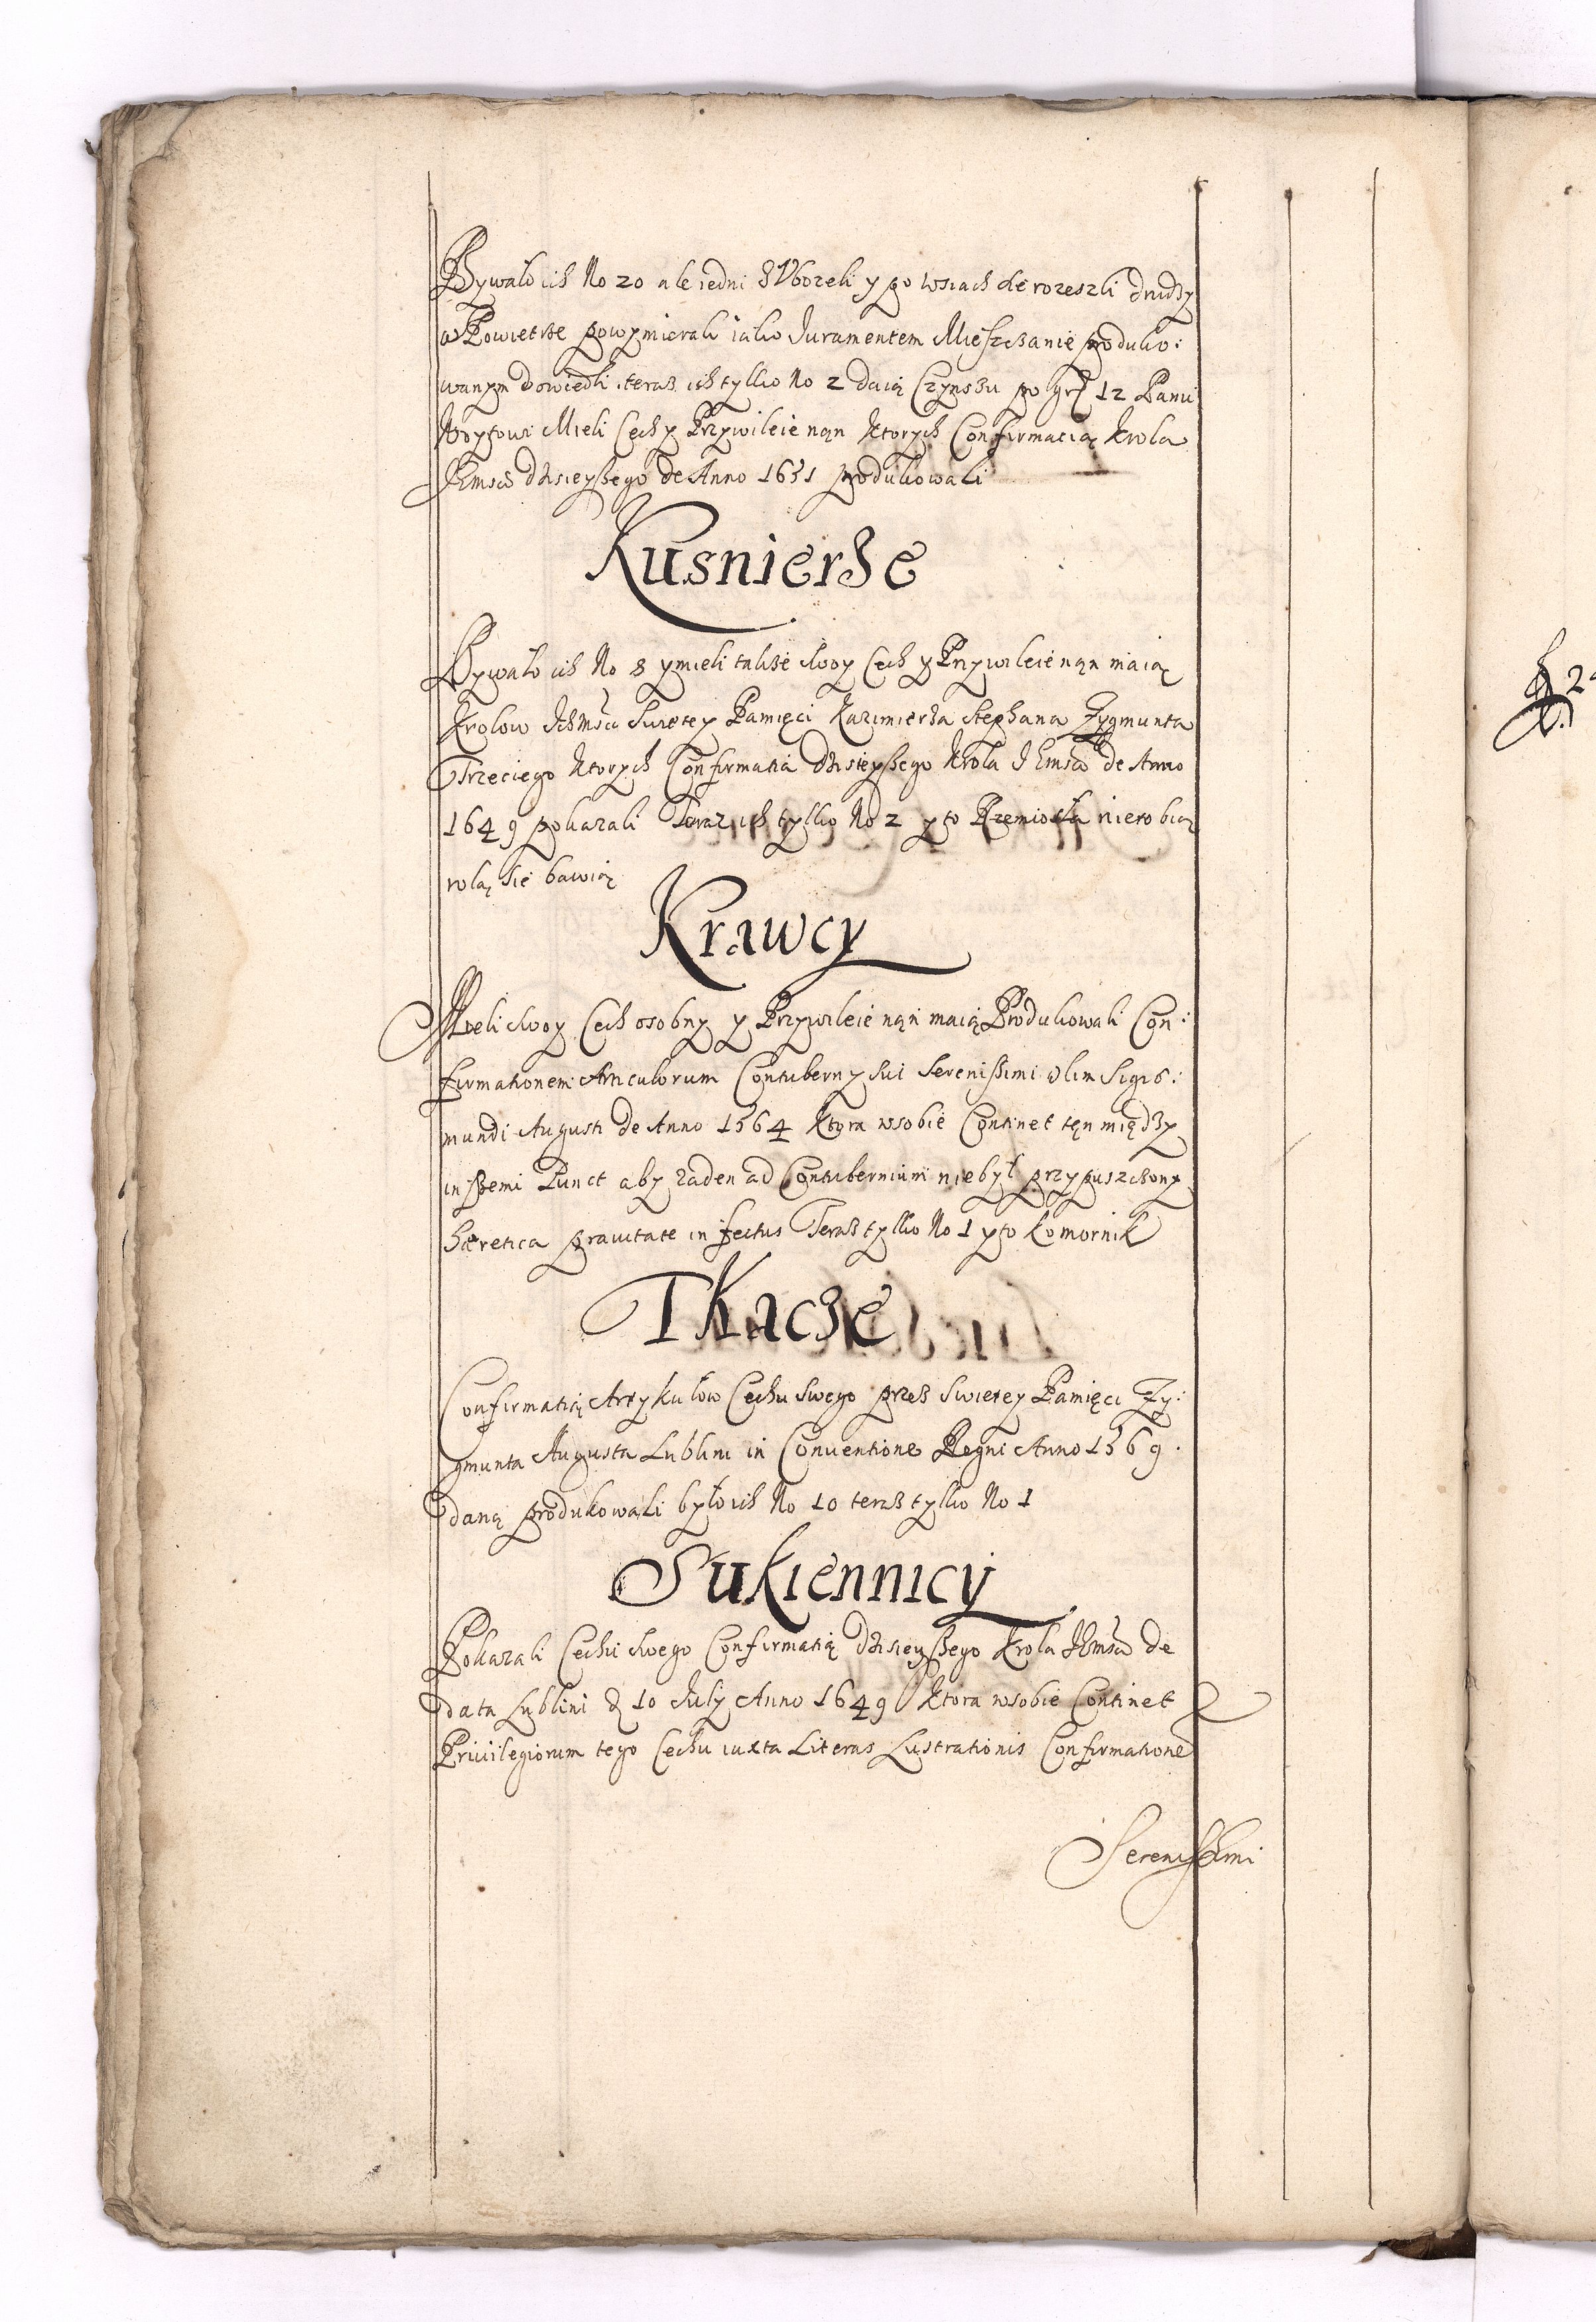 Bywało ich No 20 ale iedni zVbozeli y po wsiach sie rozeszli drudzy
w Powietrze powymierali iako Juramentem Miesczanie produko:
wanym dowiedli teraz ich tylko No 2 daią Czynszu po grz 12 Panu
Woytowi Mieli Cech y Przywileie nąn Ktorych Confirmacią Krola
JEmści dzisieyszego de Anno 1651 produkowali
Kusnierze
Bywało ich No 8 y mieli także swoy Cech y Przywileie nąn maią
Krolow Ichmśćiu Swietey Pamięci Kazimierza Stephana Zygmunta
Trzeciego Ktorych Confirmatią dzisieyszego Krola JEmści de Anno
1649 pokazali Teraz ich tylko No 2 y to Rzemiosła nierobią
rolą się bawią
Krawcy
Mieli swoy Cech osobny y Przywileie nąn maią Produkowali Con:
firmationem Articulorum Contuberny sui Serenissimi olim Sigis:
mundi Augusti de Anno 1564 Ktora wsobie Continet tęn między
inszemi Punct aby zaden ad Contubernium niebył przypuszczony
hæretica pravitate infectus Teraz tylko No 1 y to Komornik
Tkacze
Confirmatią Artykułow Cechu swego przez Swietey Pamięci Zy:
gmunta Augusta Lublini in Conventione Regni Anno 1569.
daną produkowali było ich No 10 teraz tylko No 1
Sukiennicy
Pokazali Cechu swego Confirmatią dzisieyszego Krola JEmści de
data Lublini d 10 July Anno 1649 Ktora wsobie Continet
Privilegiorum tego Cechu iuxta Literas Lustrationis Confirmatione
Serenissimi